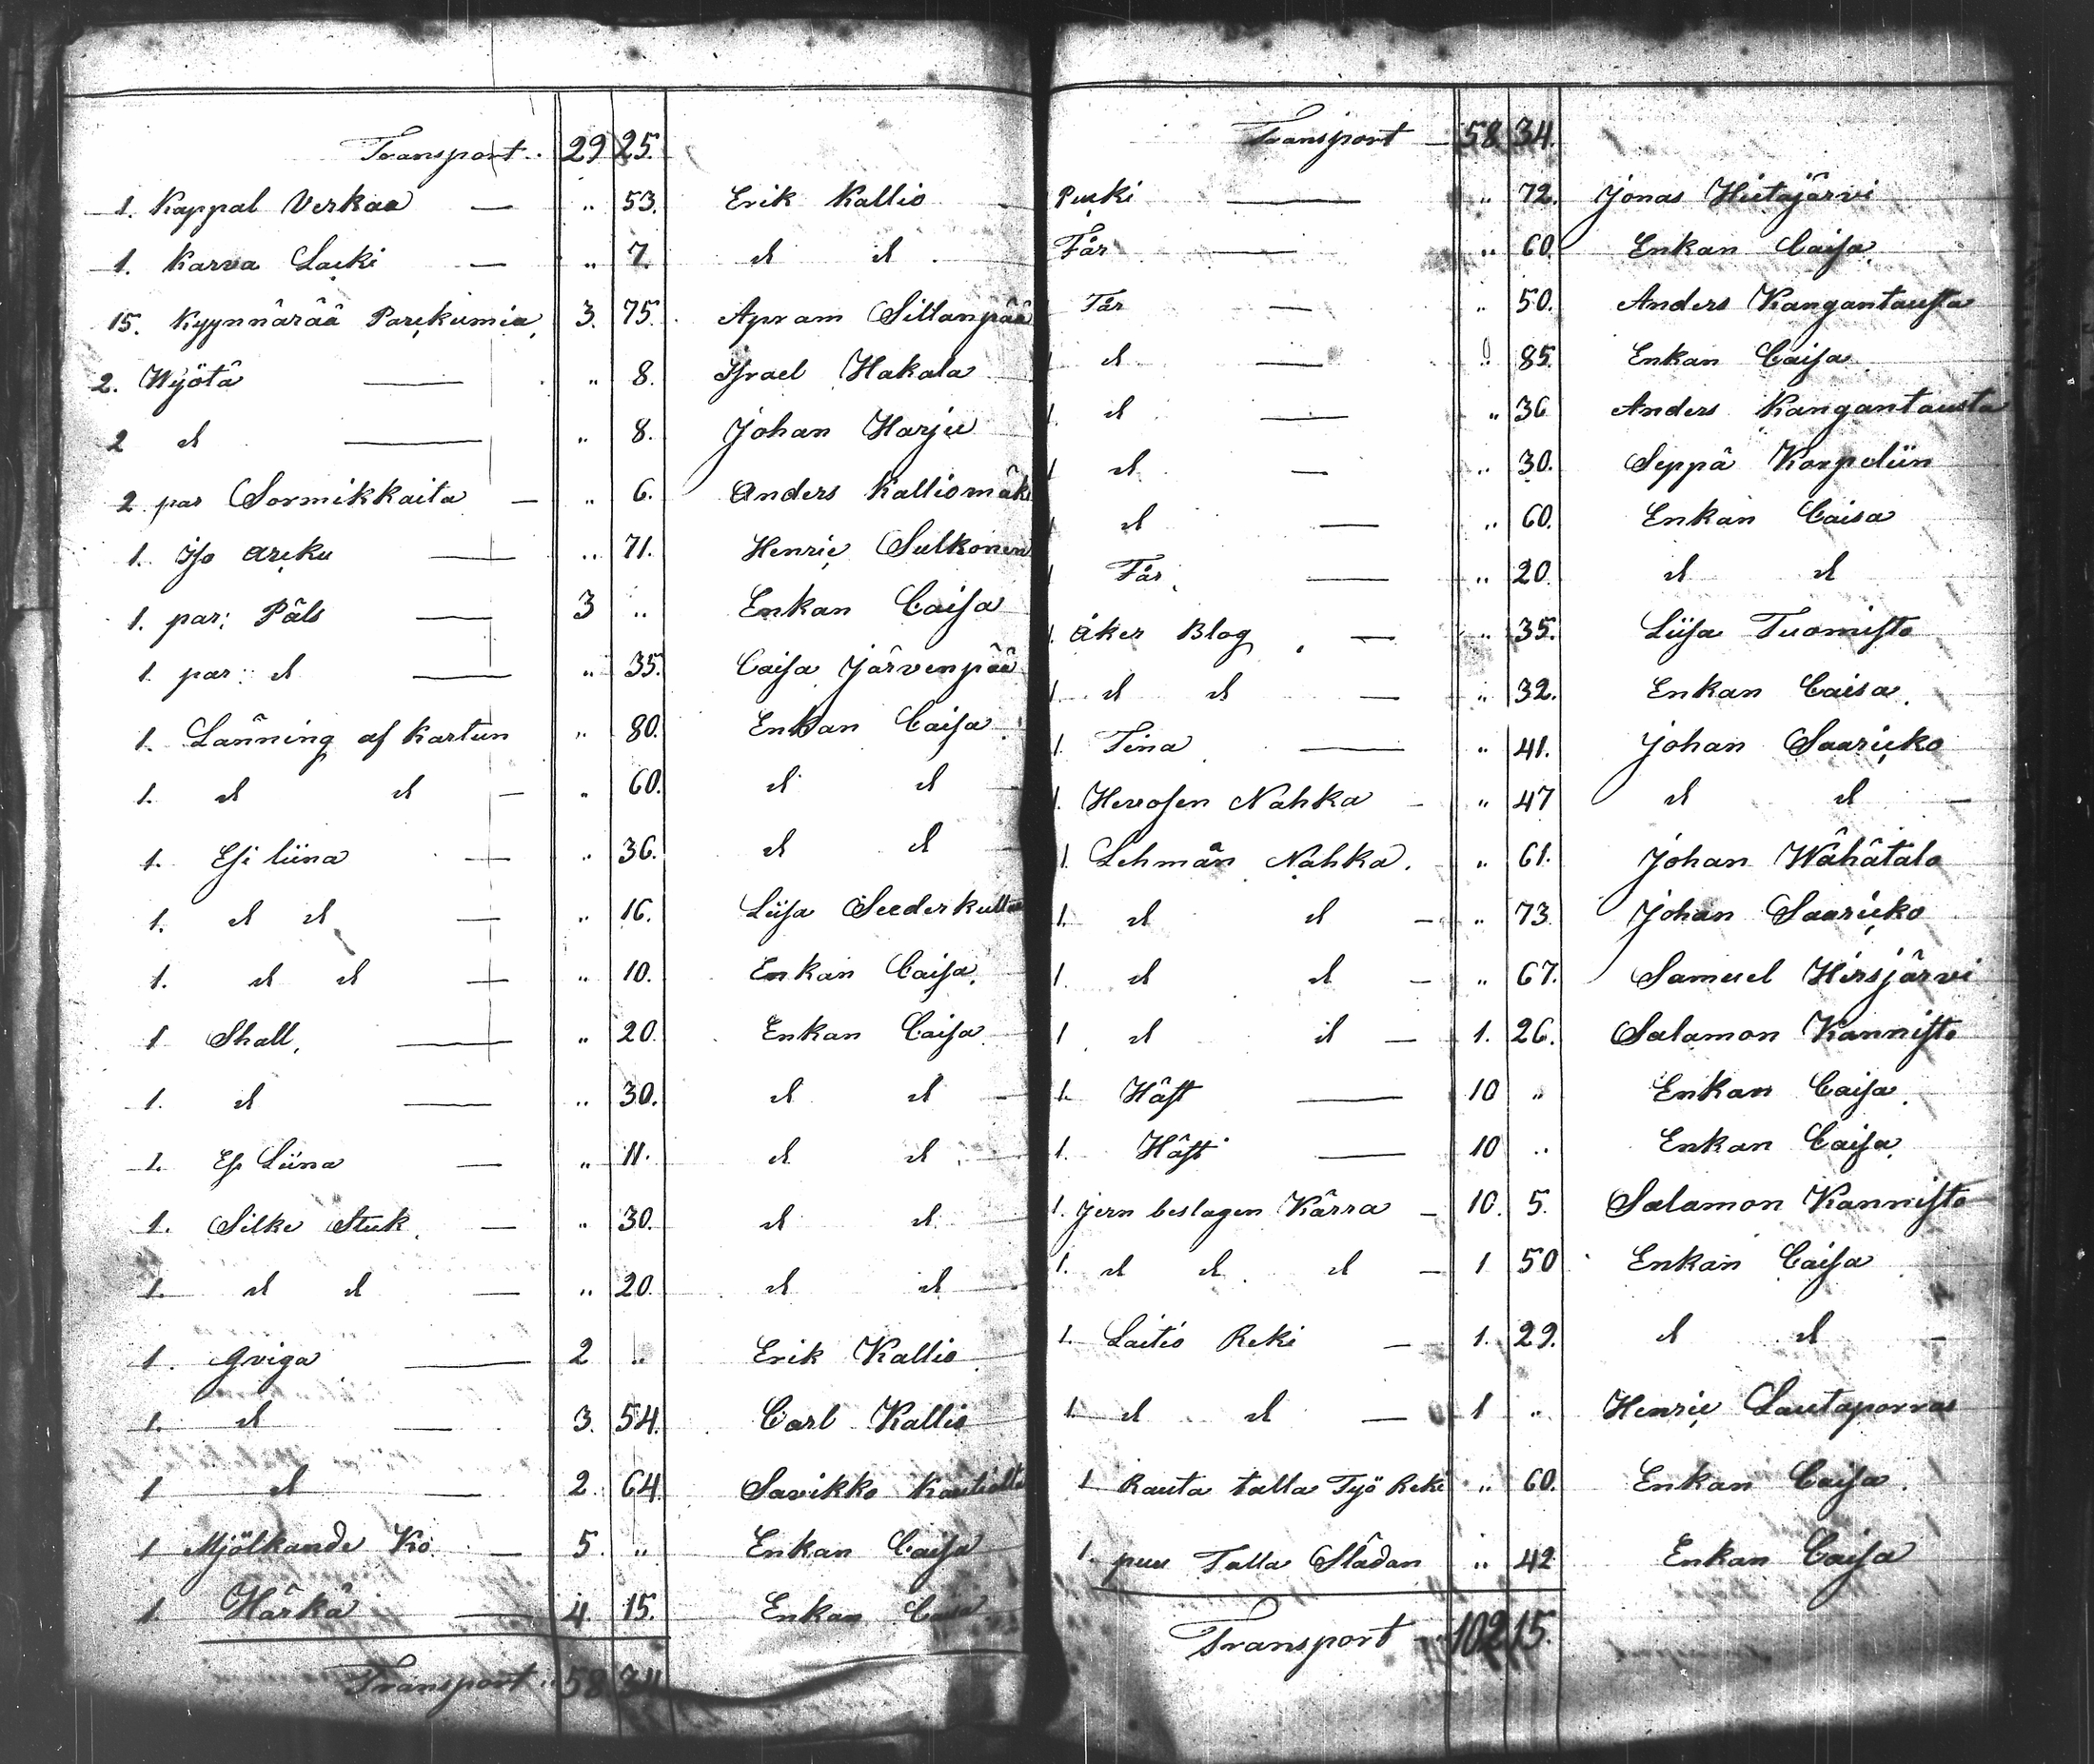 Transport . 29 25.
1. Kappal Verkaa — „ 53. Erik Kallio
1. Karva Lacki — „ 7. d d
15. Kyynnärää Parckumia, 3. 75. Apram Sillanpää
2. Wyötä — „ 8. Israel Hakala
2 d — „ 8. Johan Harju
2 par Sormikkaita — „ 6. Anders Kalliomäki
1. Iso arcku — „ 71. Henric Sulkonen
1. par: Päls — 3 „ Enkan Caisa
1 par: d — „ 35. Caisa Järvenpää
1. Länning af Kartun „ 80. Enkan Caisa
1. d d — „ 60. d d
1. Esi liina — „ 36. d d
1. d d — „ 16. Liisa
1. d d — „ 10. Enkan Caisa
1 Shall, — „ 20. Enkan Caisa
1. d — „ 30. d d
1. Es Liina — „ 11. d d
1. Silke Stuk. — „ 30. d d
1. d d — „ 20. d d
1. Gviga — 2 „ Erik Kallio
1. d — 3. 54. Carl Kallio
1 d — 2. 64. Savikko
1 Mjölkande Ko — 5. „ Enkan Caisa
1. Härkä — 4. 15. Enkan Caisa
Transport „ 58. 34
Transport — 58. 34.
Pucki — „ 72. Jonas Hietajärvi
Får — „ 60. Enkan Caisa
Får — „ 50. Anders Kangantausta
d — „ 85. Enkan Caisa
1. d — „ 36 Anders Kangantausta
1 d — „ 30. Seppä Korpeliin
1 d — „ 60. Enkan Caisa
1 Får, — „ 20. d d
1. åker Blog — „ 35. Liisa Tuomisto
1. d d — „ 32. Enkan Caisa
1. Tina — „ 41. Johan Saaricko
1. Hevosen Nahka — „ 47 d d —
1. Lehmän Nahka. — „ 61. Johan Wähätalo
1. d d — „ 73. Johan Saaricko
1. d d — „ 67. Samuel Hirsjärvi
1 d d — 1. 26. Salamon Kannisto
1. Häst — 10 „ Enkan Caisa
1. Häst — 10 „ Enkan Caisa
1. jern beslagen Kärra — 10. 5. Salamon Kannisto
1. d d d — 1 50 Enkan Caisa
1. Laitio Reki — 1. 29. d d —
1. d d — 1 „ Henric Lautaporras
1 Rauta talla Työ Reki „ 60. Enkan Caisa
1. puu Talla Slädan „ 42 Enkan Caisa
Transport 102 15.